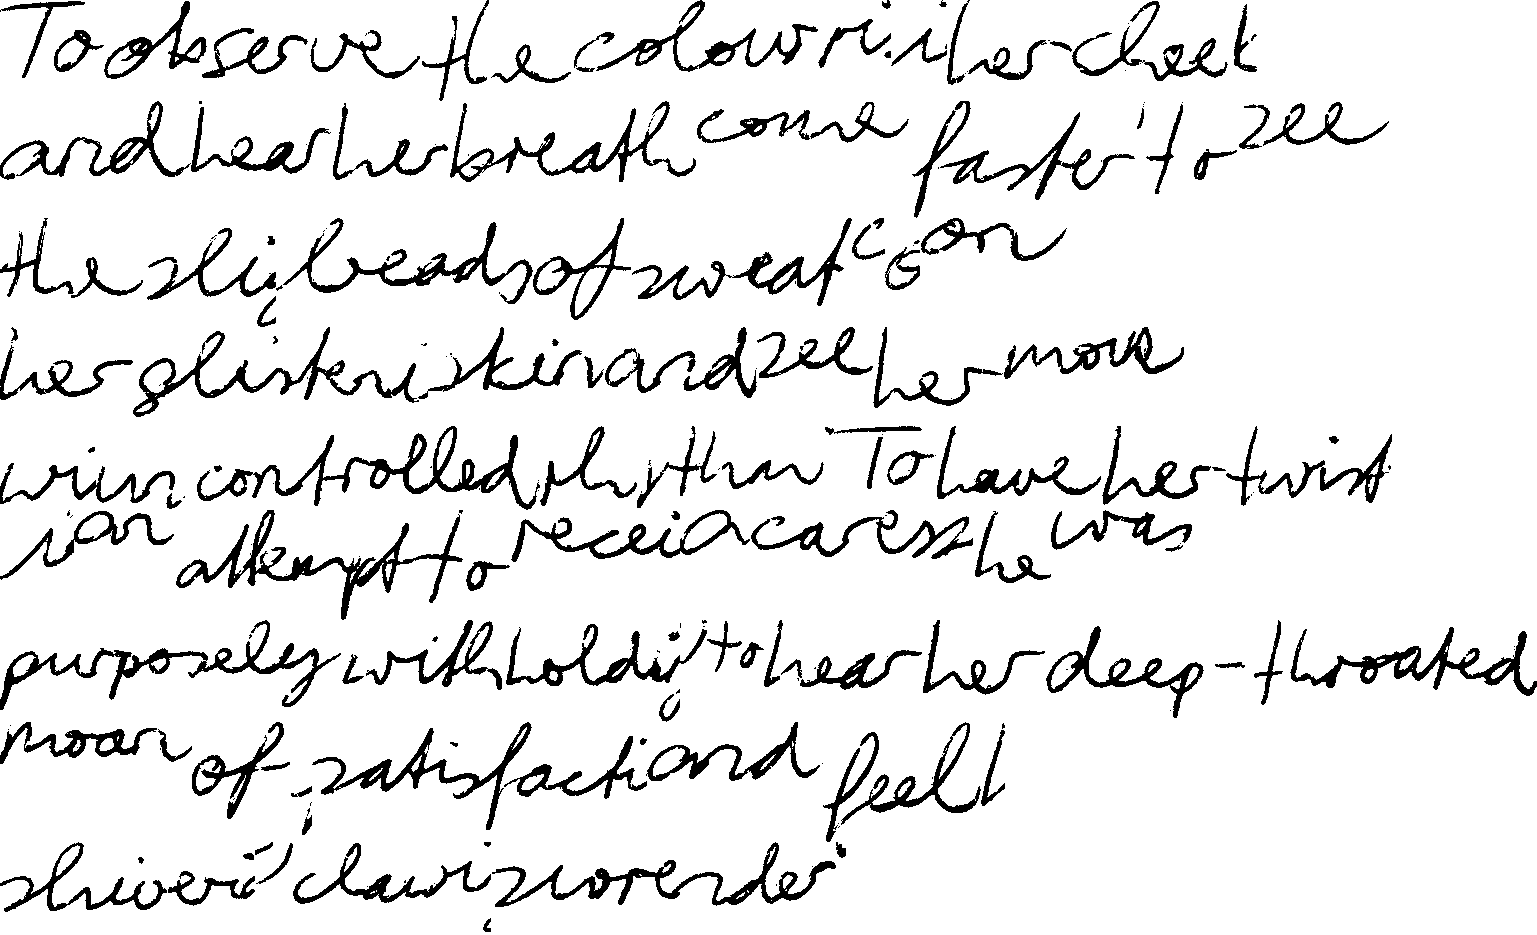 To observe the colour ri i her cheek
and hear her breath come faster to see
the sli beads of sweat on
her glisteni skin and see her move
wi uncontrolled rhythm To have her twist
i an attempt to recei a caress he was
purposely withholdi to hear her deep-throated
moan of satisfacti and feel
shiveri clawi surrender